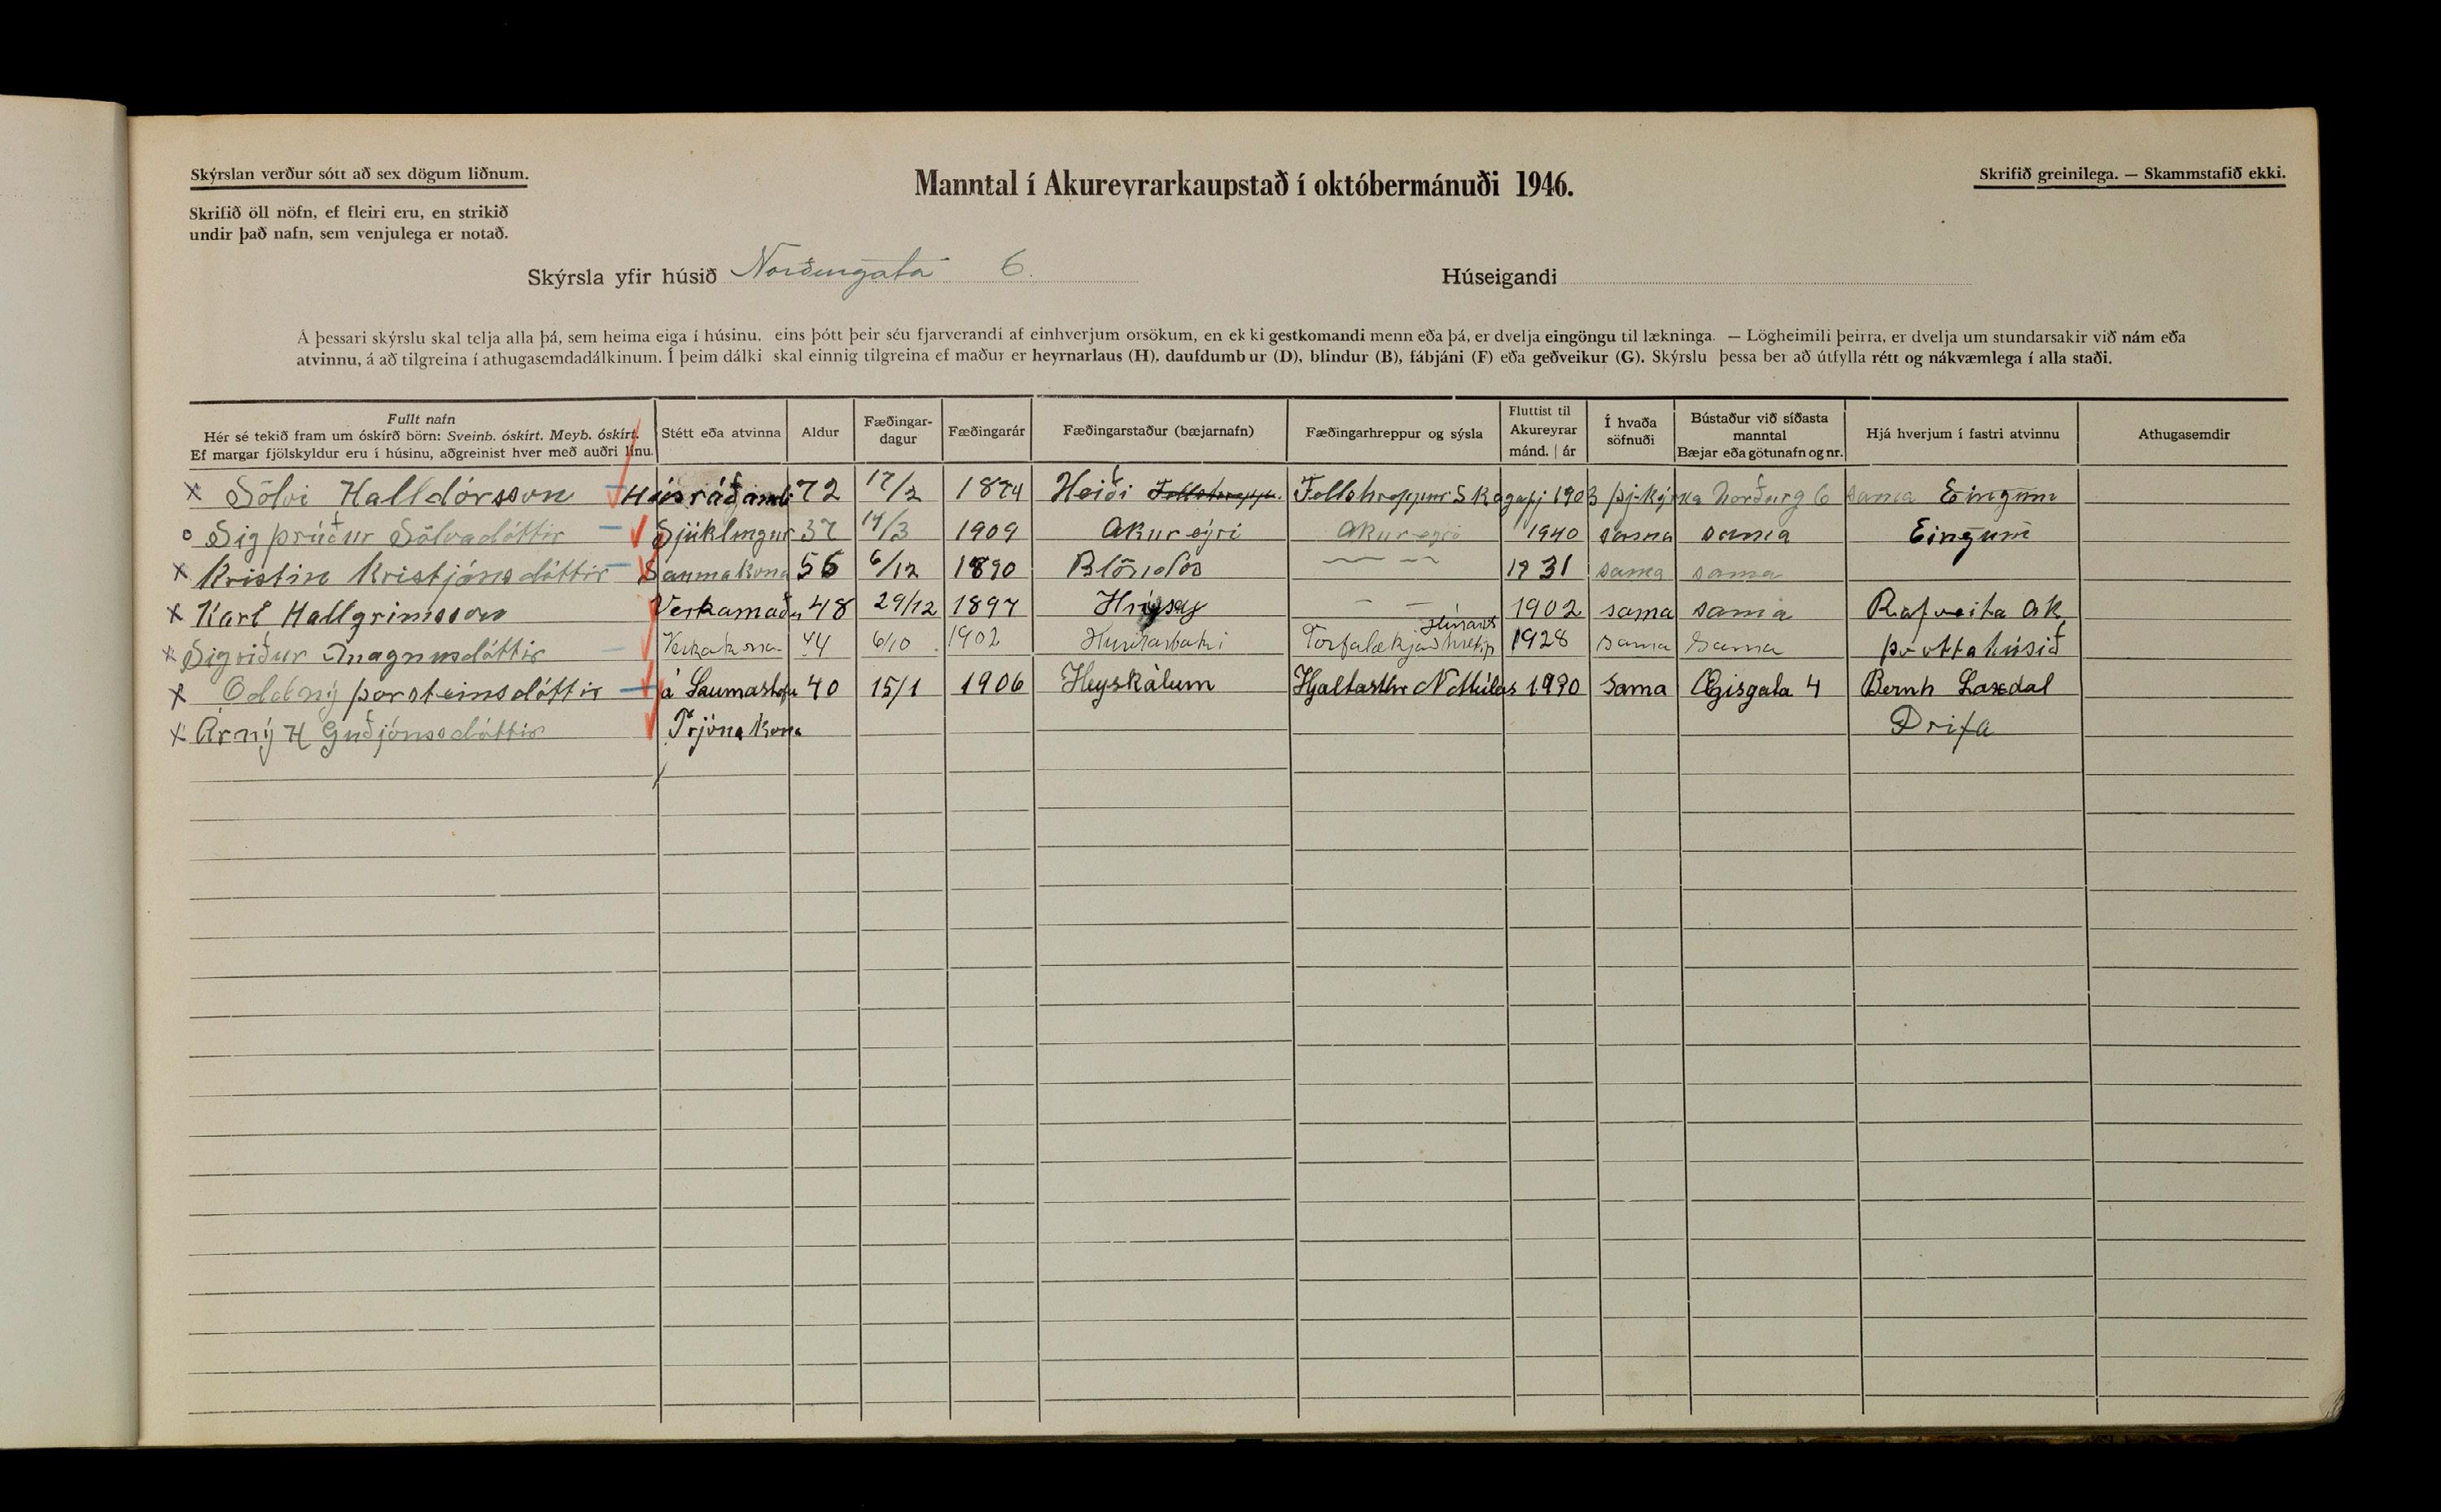 Skýrslan verður sótt að sex dögum liðnum.
Manntal í Akureyrarkaupstað í októbermánuði 1946.
Skrifið greinilega. — Skammstafið ekki.
Skrifið öll nöfn, ef fleiri eru, en strikið
undir það nafn, sem venjulega er notað.
Skýrsla yfir húsið Norðurgata 6.
Húseigandi
Á þessari skýrslu skal telja alla þá, sem heima eiga í húsinu, eins þótt þeir séu fjarverandi af einhverjum orsökum, en ekki gestkomandi menn eða þá, er dvelja eingöngu til lækninga. — Lögheimili þeirra, er dvelja um stundarsakir við nám eða
atvinnu, á að tilgreina í athugasemdadálkinum. Í þeim dálki skal einnig tilgreina ef maður er heyrnarlaus (H), daufdumbur (D), blindur (B), fábjáni (F) eða geðveikur (G). Skýrslu þessa ber að útfylla rétt og nákvæmlega í alla staði.
Fullt nafn
Hér sé tekið fram um óskírð börn: Sveinb. óskírt. Meyb. óskírt.
Ef margar fjölskyldur eru í húsinu, aðgreinist hver með auðri línu.
Stétt eða atvinna
Aldur
Fæðingar-
dagur
Fæðingarár
Fæðingarstaður (bæjarnafn)
Fæðingarhreppur og sýsla
Fluttist til
Akureyrar
mánd. | ár
Í hvaða
söfnuði
Bústaður við síðasta
manntal
Bæjar eða götunafn og nr.
Hjá hverjum í fastri atvinnu
Athugasemdir
x Sölvi Halldórsson Húsráðandi 72 17/2 1874 Heiði Fellshreppur Skagafj 1903 þj-kýrka Norðurg 6 sama Eingum
o Sigþrúður Sölvadóttir Sjúklingur 37 14/3 1909 Akureyri Akureyri 1940 sama sama Eingum
x Kristin Kristjánsdóttir Saumakona 56 6/12 1890 Blönđos 〃 〃 1931 sama sama
x Karl Hallgrimsson Verkamaður 48 29/12 1897 Hrysey 〃 〃 1902 sama sama Rafveita Ak
x Sigriður Magnusdóttir Verkakona 44 6/10 1902 Torfalækjarhrepp Húnavs 1928 sama sama þvottahúsið
x Oddný þorsteinsdóttir á Saumastofu 40 15/1 1906 Heyskálum Hjaltasthr N Múlas 1930 sama Ægisgata 4 Bernh Laxdal
x Árný H Guðjónsdóttir Prjónakona Drifa